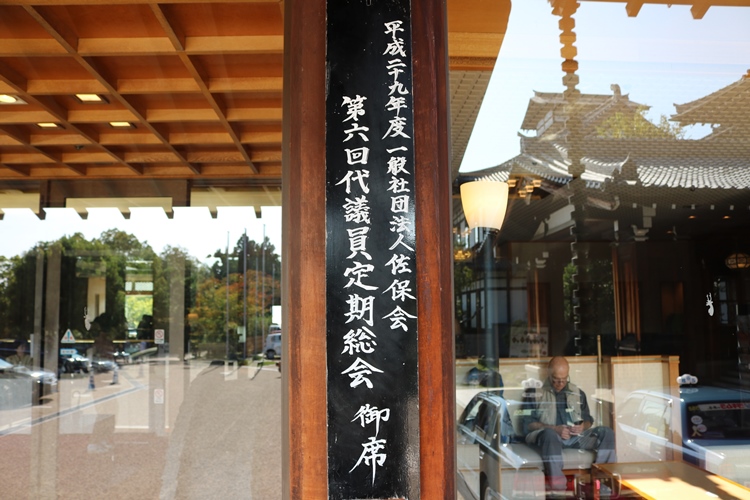 平成二十九年度一般社団法人佐保会
第六回代議員定期総会 御席